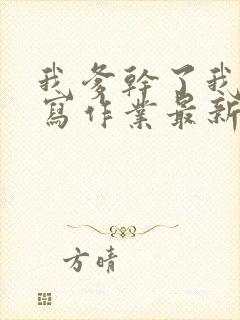 我爹幹了我
寫作業最新
方晴